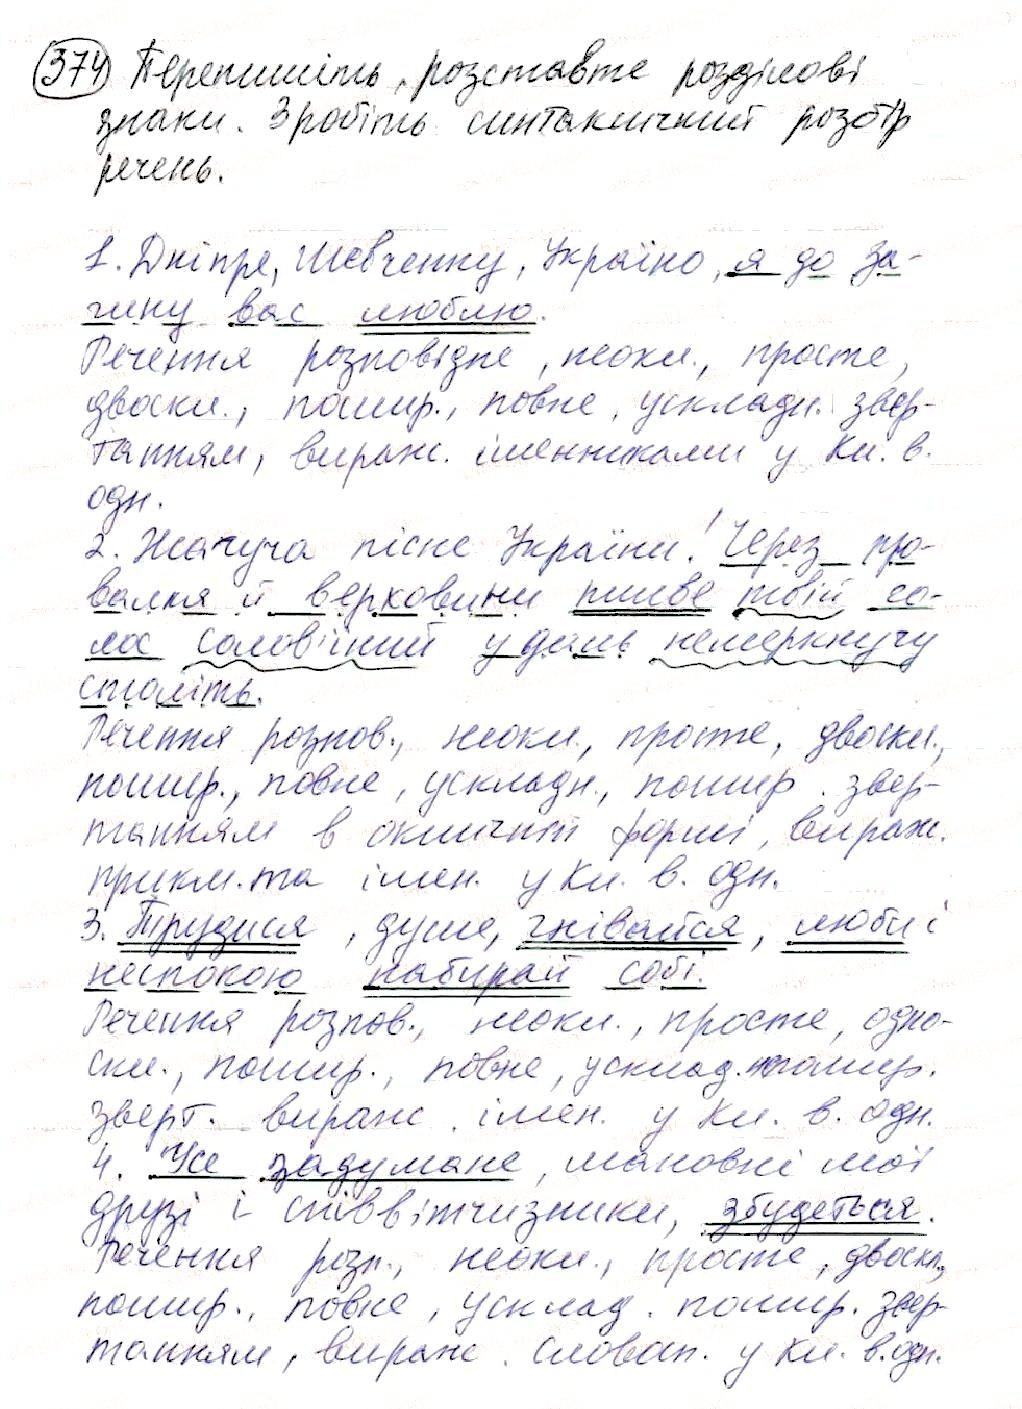 374 Перепишіть, розставте розділові
знаки. Зробіть синтаксичний розбір
речень.
1. Дніпре, Шевченку, Україно, я до за-
гину вас люблю.
Речення розповідне, неокл., просте,
двоскл., пошир., повне, ускладн. звер-
танням, вираж. іменниками у Кл. в.
одн.
2. Жагуча пісне України! Через про-
валля й верховини пливе твій го-
лос солов'їний у даль немеркнучу
століть.
Речення розпов., неокл., просте, двоскл.,
пошир., повне, ускладн., пошир. звер-
танням в окличній формі, вираж.
прикм. та імен. у Кл. в. одн.
3. Трудися, душе, гнівайся, люби і
неспокою набирай собі.
Речення розпов., неокл., просте, одно-
скл., пошир., повне, усклад. непошир.
зверт. вираж. імен. у Кл. в. одн.
4. Усе задумане, шановні мої
друзі і співвітчизники, збудеться.
Речення розп., неокл., просте, двоскл.,
пошир., повне, усклад. пошир. звер-
танням, вираж. словосп. у Кл. в. одн.